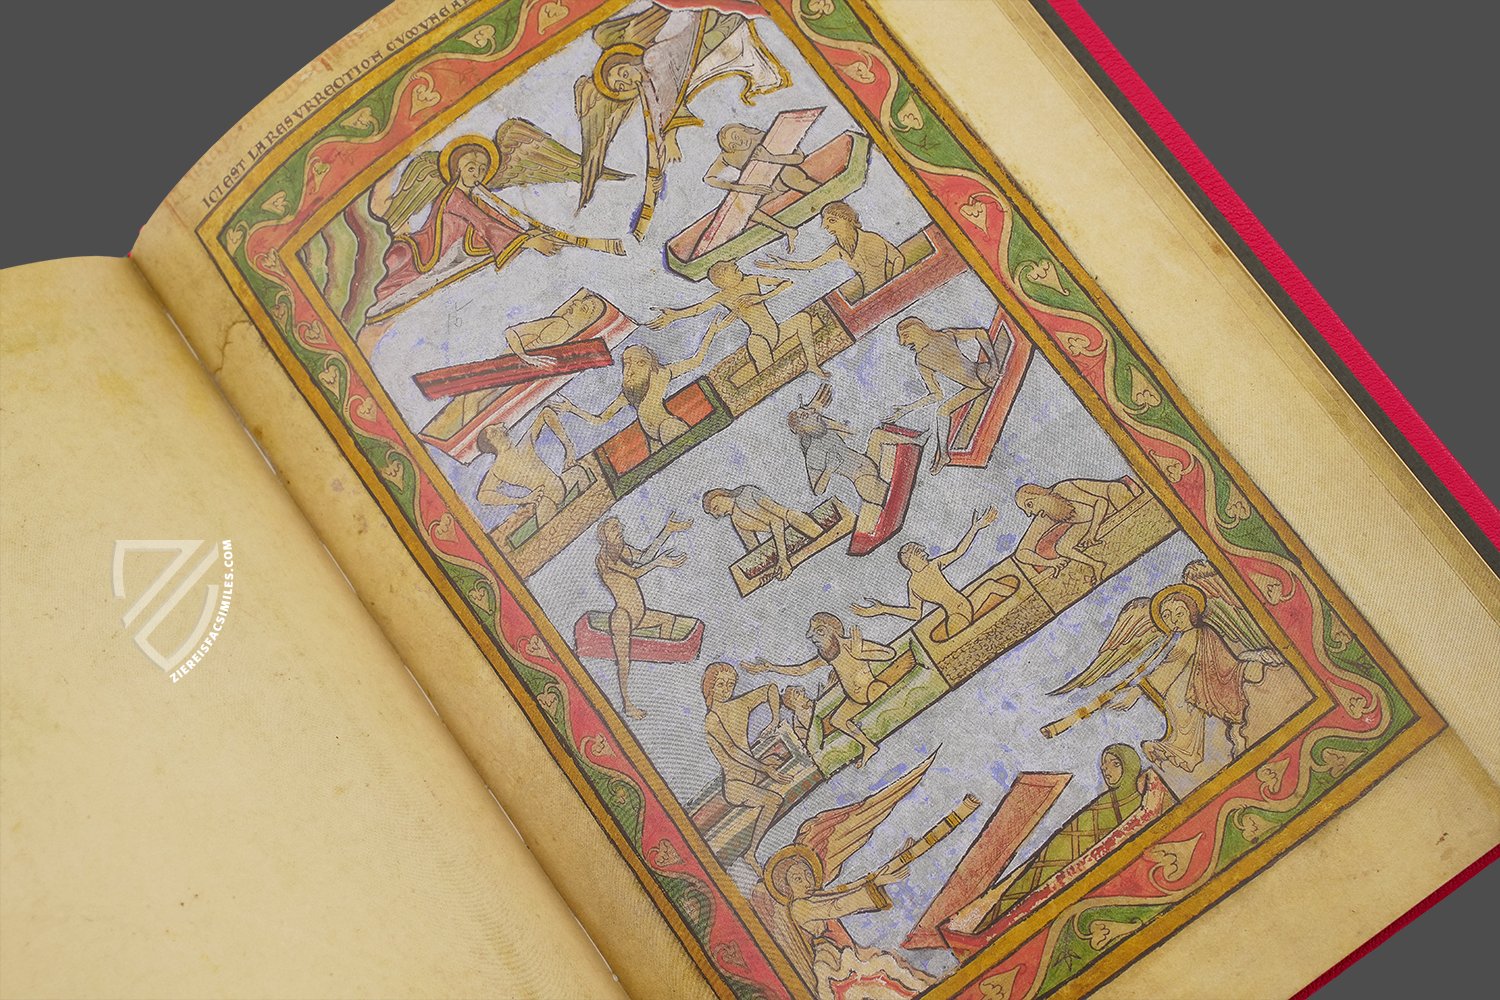 ICI EST LA RESURRECTION CUMUNE A
ZIEREISFACSIMILES.COM